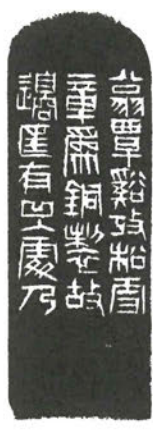 翁覃谿攷松雪
章爲銅製故
邊匡有凹處乃